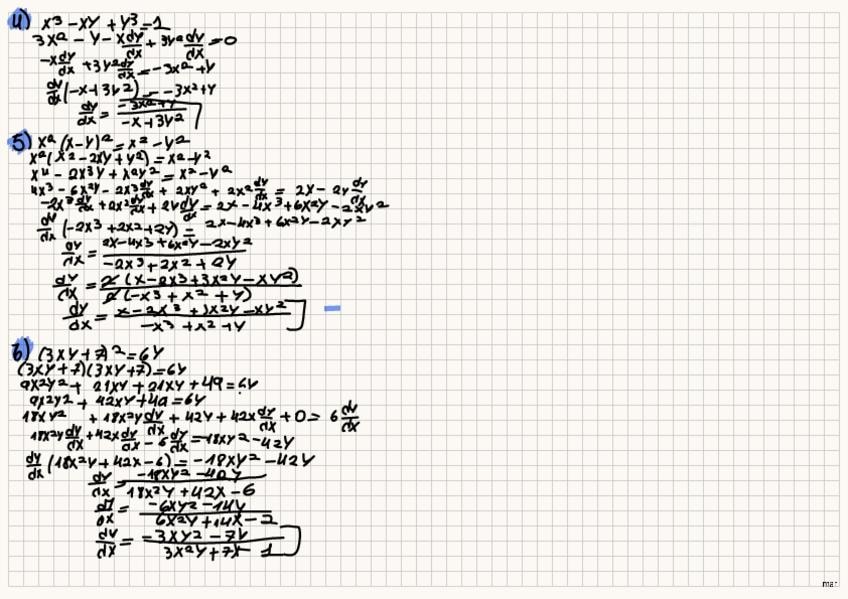 4) x³ - xy + y³ = 1
3x² - y - x dy/dx + 3y² dy/dx = 0
-x dy/dx + 3y² dy/dx = -3x² + y
dy/dx (-x + 3y²) = -3x² + y
dy/dx = (-3x² + y)/(-x + 3y²)
5) x² (x-y)² = x² - y²
x² (x² - 2xy + y²) = x² - y²
x⁴ - 2x³y + x²y² = x² - y²
4x³ - 6x²y - 2x³ dy/dx + 2xy² + 2x² dy/dx = 2x - 2y dy/dx
-2x³ dy/dx + 2x² dy/dx + 2y dy/dx = 2x - 4x³ + 6x²y - 2xy²
dy/dx (-2x³ + 2x² + 2y) = 2x - 4x³ + 6x²y - 2xy²
dy/dx = (2x - 4x³ + 6x²y - 2xy²)/(-2x³ + 2x² + 2y)
dy/dx = 2(x - 2x³ + 3x²y - xy²)/2(-x³ + x² + y)
dy/dx = (x - 2x³ + 3x²y - xy²)/(-x³ + x² + y)
6) (3xy + 7)² = 6y
(3xy + 7)(3xy + 7) = 6y
9x²y² + 21xy + 21xy + 49 = 6y
9x²y² + 42xy + 49 = 6y
18xy² + 18x²y dy/dx + 42y + 42x dy/dx + 0 = 6 dy/dx
18x²y dy/dx + 42x dy/dx - 6 dy/dx = -18xy² - 42y
dy/dx (18x²y + 42x - 6) = -18xy² - 42y
dy/dx = (-18xy² - 42y)/(18x²y + 42x - 6)
dy/dx = (-6xy² - 14y)/(6x²y + 14x - 2)
dy/dx = (-3xy² - 7y)/(3x²y + 7x - 1)
mar